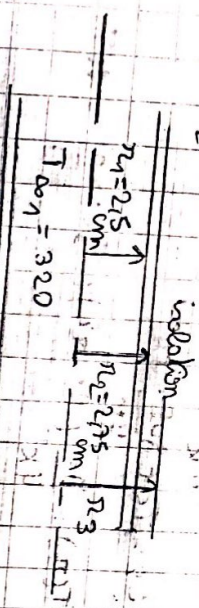 isolation
r1=2,5
cm
r2=2,75
cm
r3
T∞1 = 320